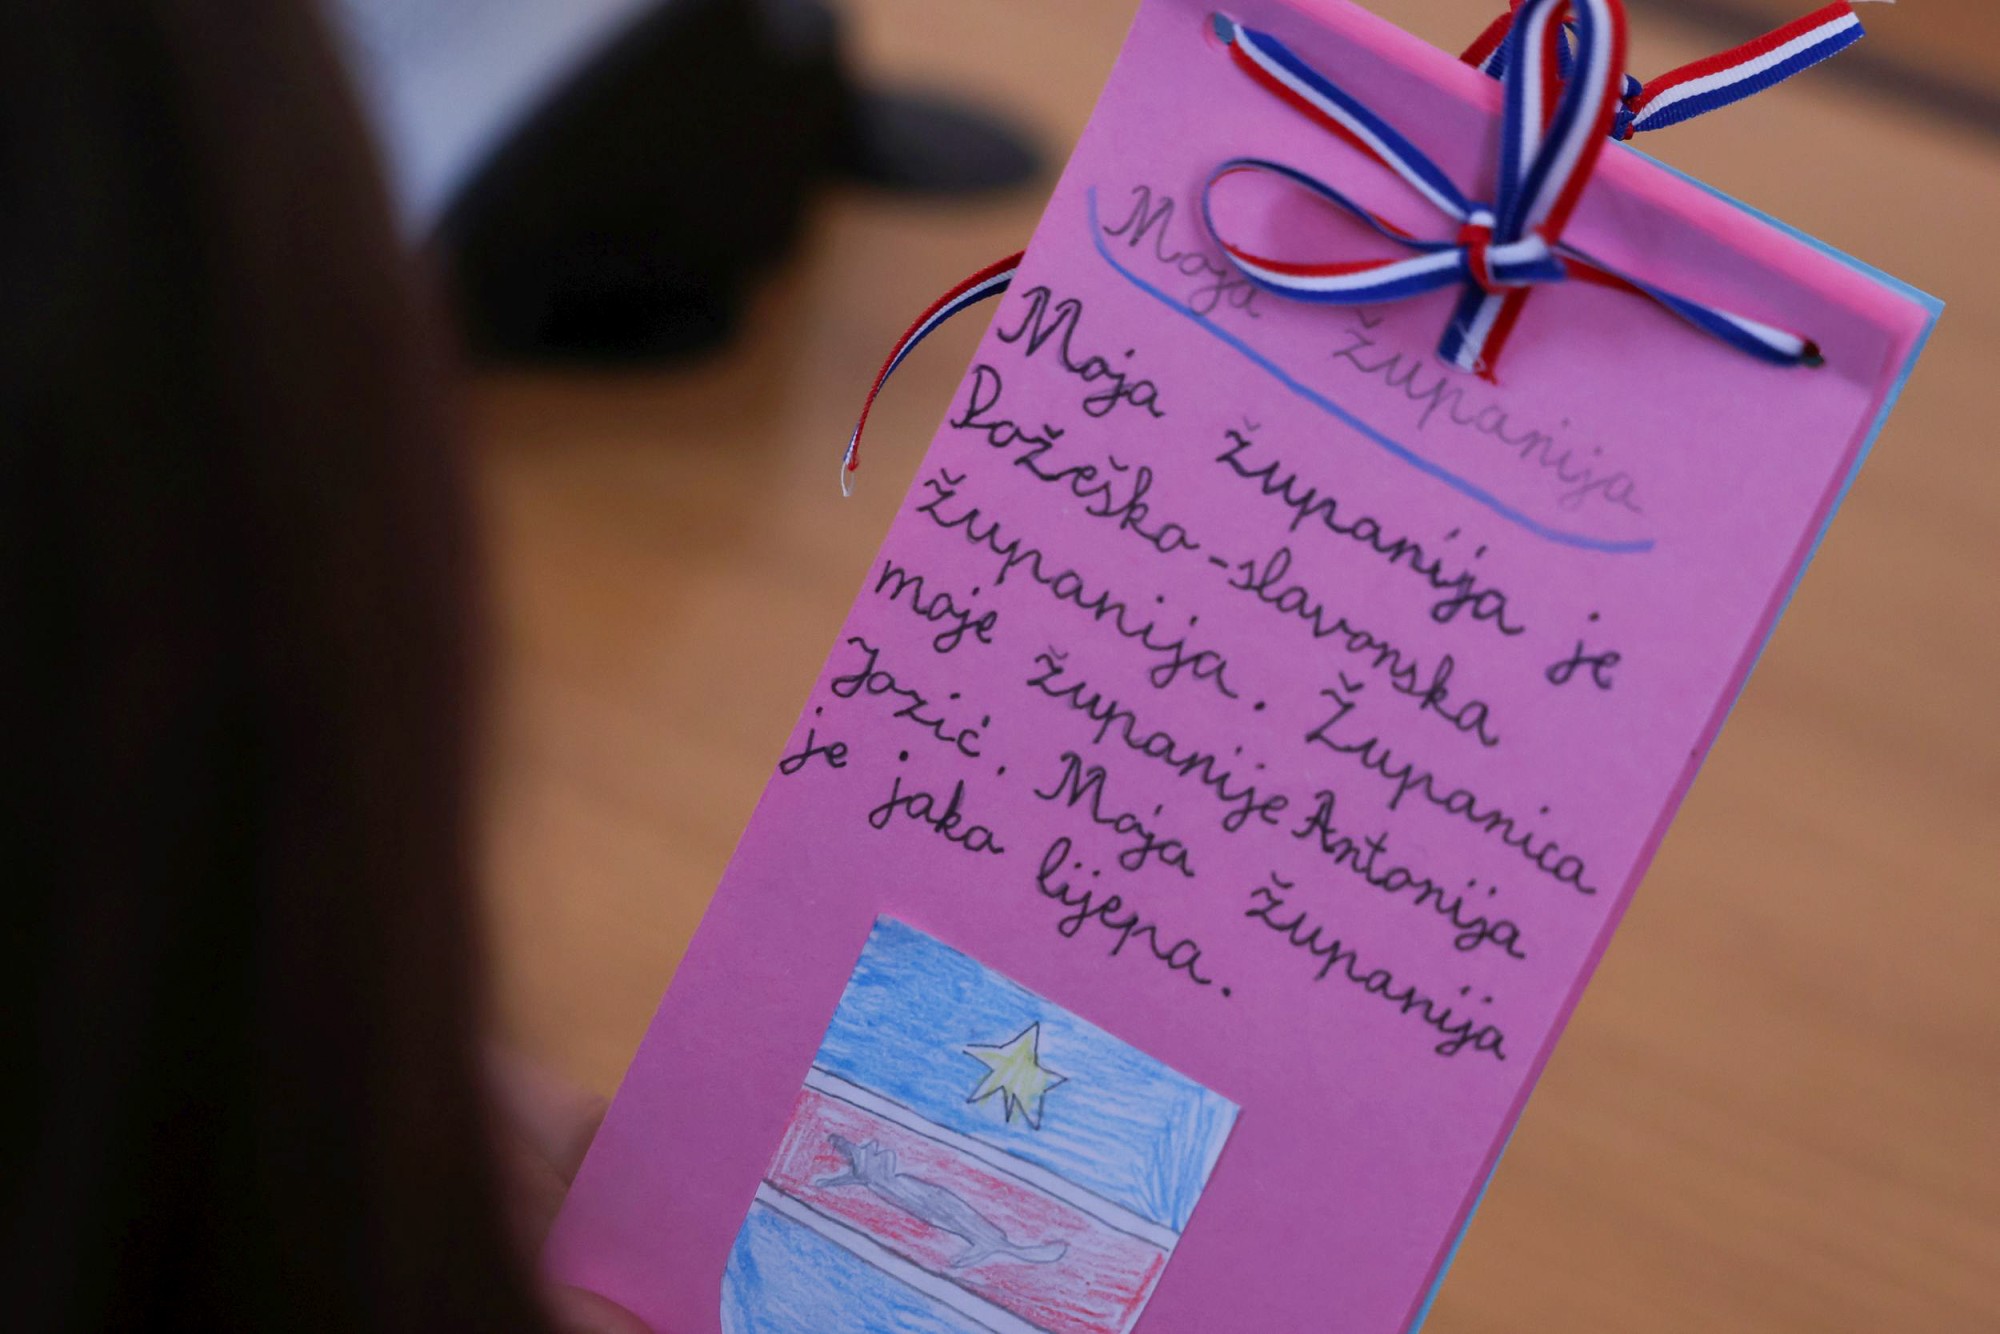 Moja županija
Moja županija je
Požeško-slavonska
županija. Županica
moje županije Antonija
Jozić. Moja županija
je jako lijepa.